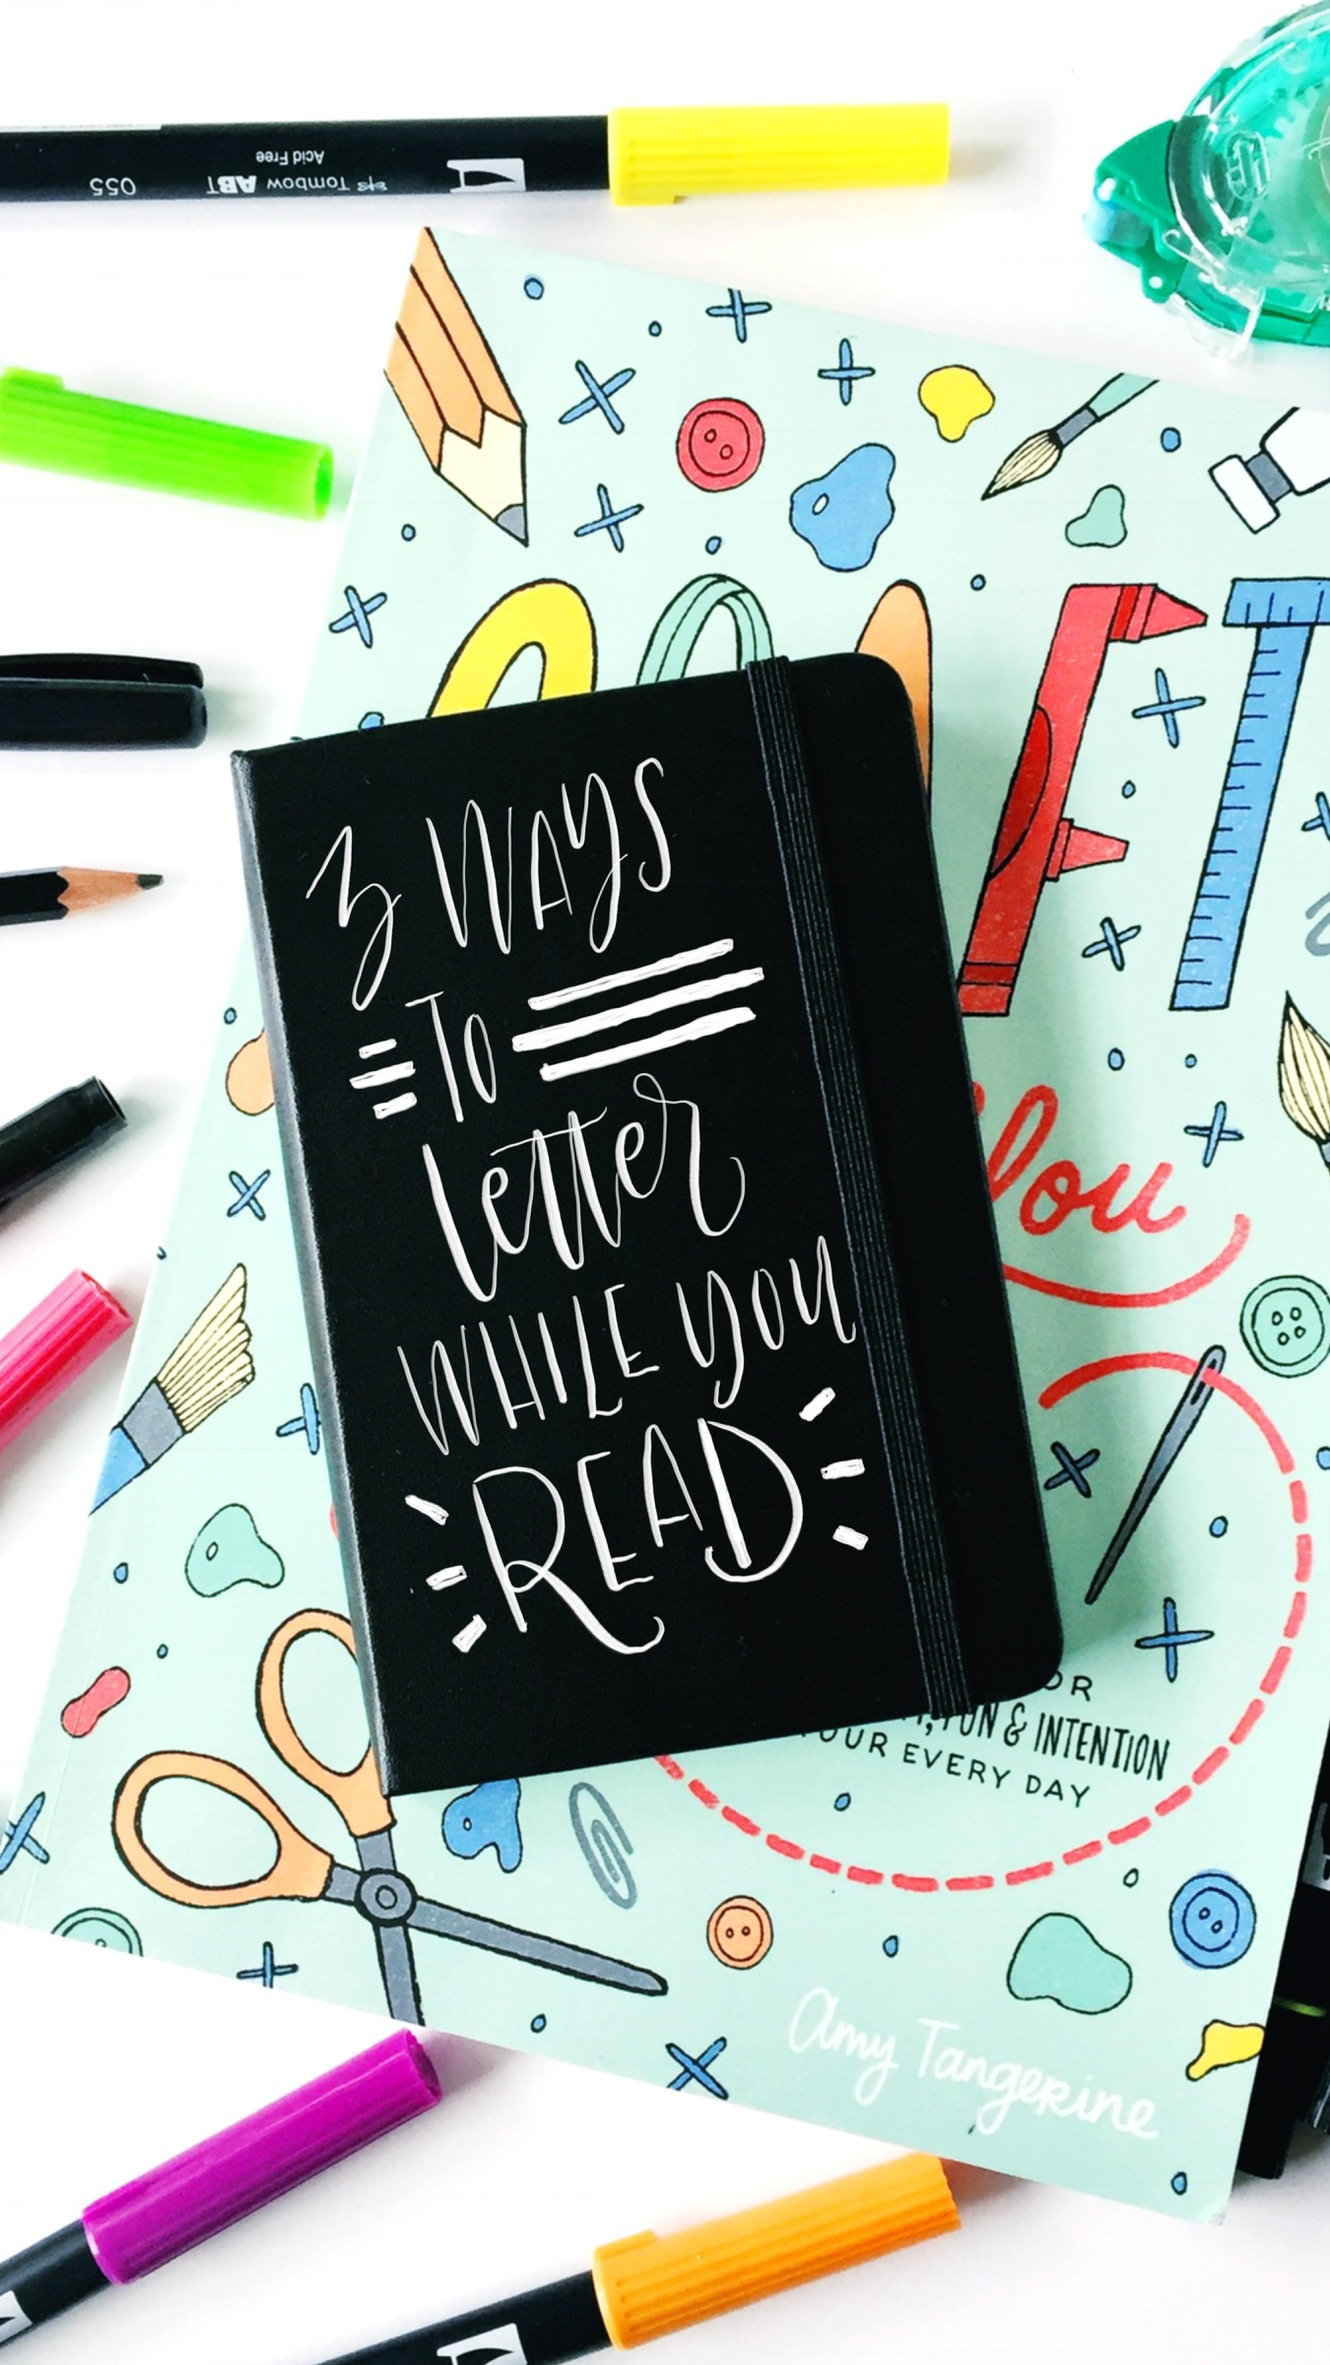 055 Tombow ABT
Acid Free
3 WAYS
To
letter
WHILE YOU
READ
FT
You
FUN & INTENTION
YOUR EVERY DAY
Amy Tangerine